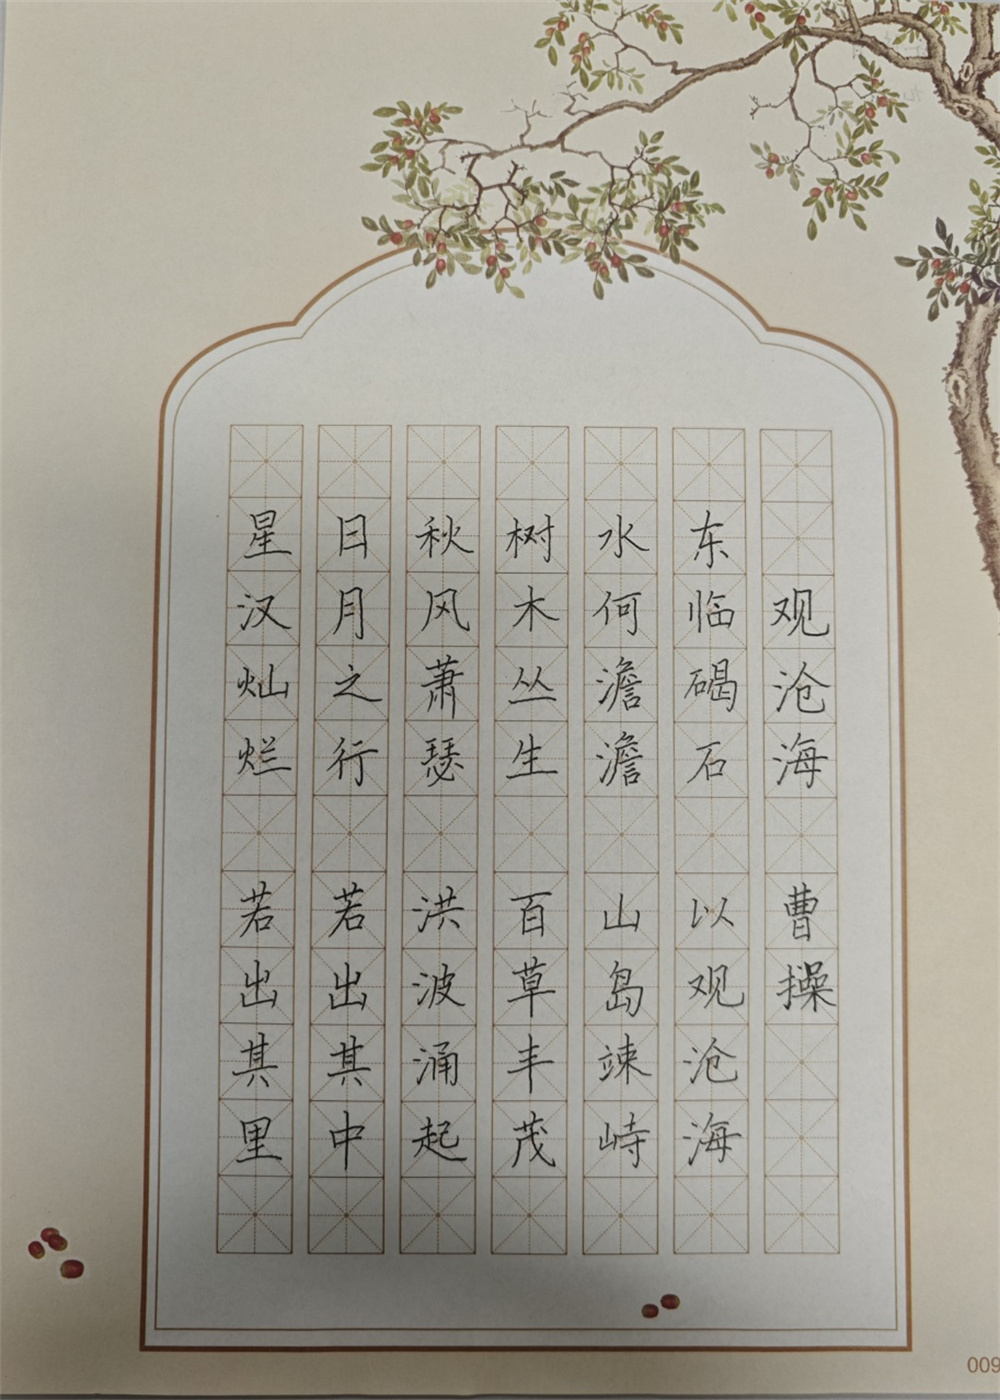 观沧海 曹操
东临碣石 以观沧海
水何澹澹 山岛竦峙
树木丛生 百草丰茂
秋风萧瑟 洪波涌起
日月之行 若出其中
星汉灿烂 若出其里
009